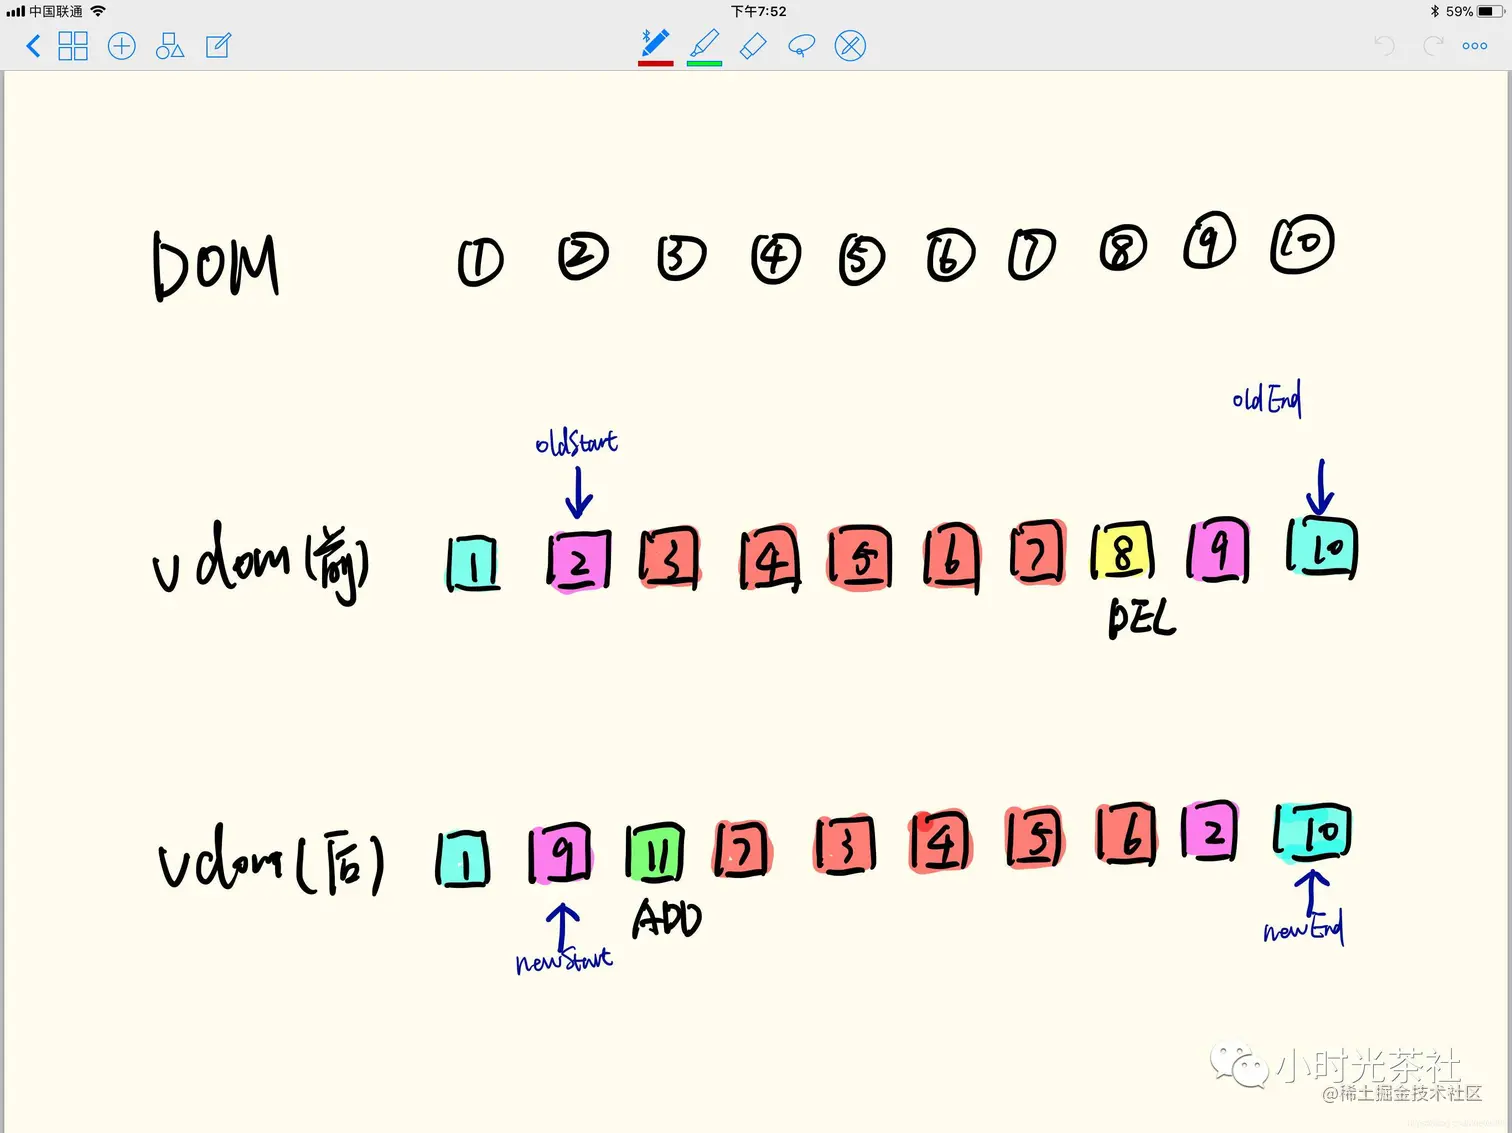 中国联通 下午7:52 59%
DOM 1 2 3 4 5 6 7 8 9 10
oldStart oldEnd
vdom(前) 1 2 3 4 5 6 7 8 9 10
DEL
vdom(后) 1 9 11 7 3 4 5 6 2 10
newStart ADD newEnd
小时光茶社
@稀土掘金技术社区